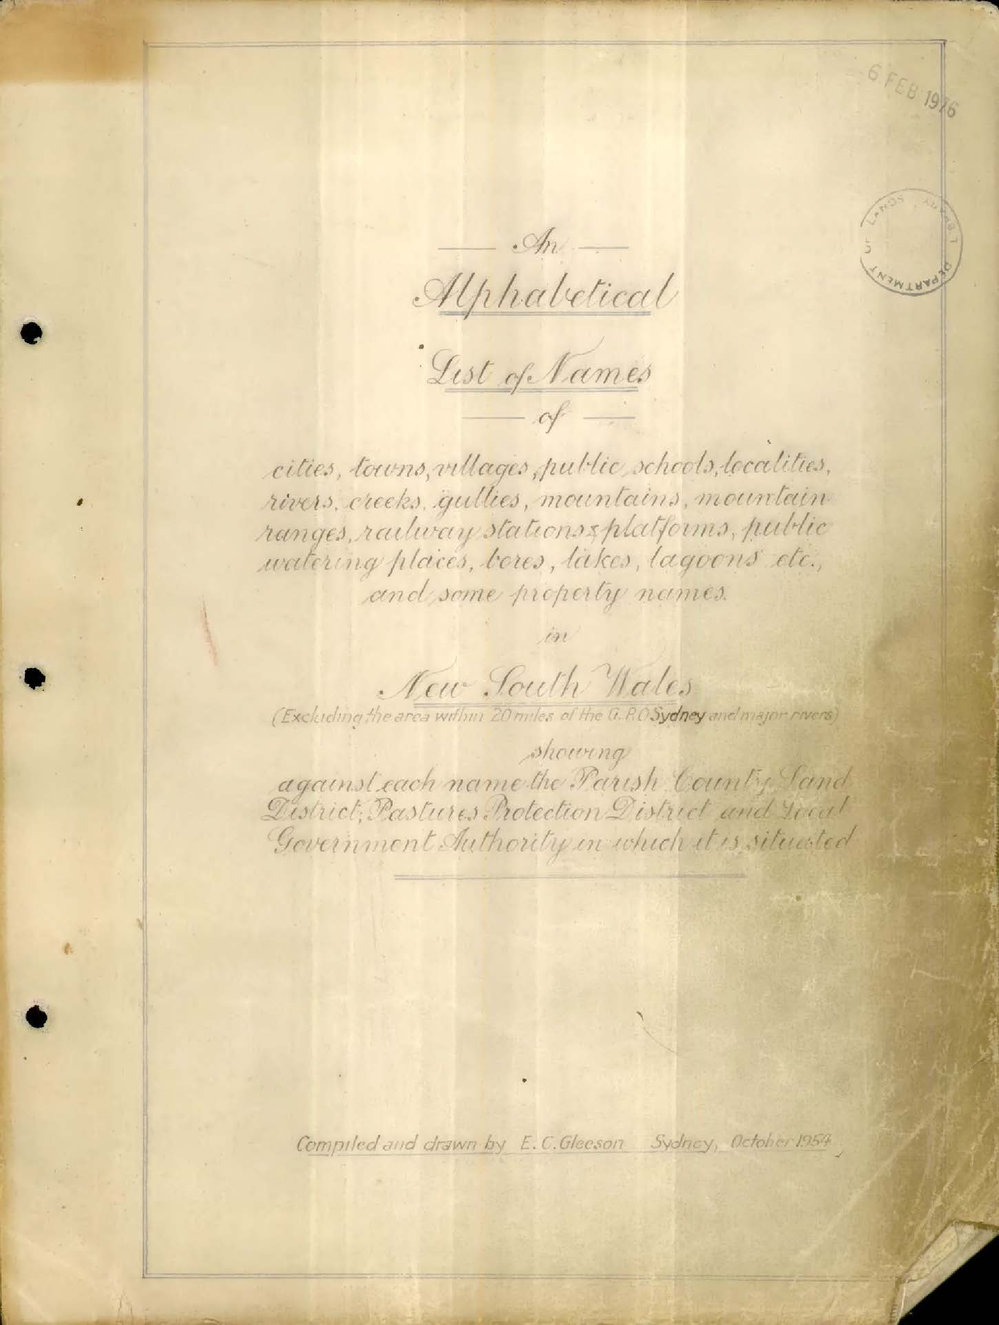 6 FEB 1976
LIBRARY DEPARTMENT OF LANDS
An
Alphabetical
List of Names
of
cities, towns, villages, public schools, localities,
rivers, creeks, gullies, mountains, mountain
ranges, railway stations & platforms, public
watering places, bores, lakes, lagoons etc.,
and some property names.
in
New South Wales
(Excluding the area within 20 miles of the G.P.O Sydney and major rivers)
showing
against each name the Parish, County, Land
District, Pastures Protection District and Local
Government Authority in which it is situated
Compiled and drawn by E. C. Gleeson Sydney, October 1954